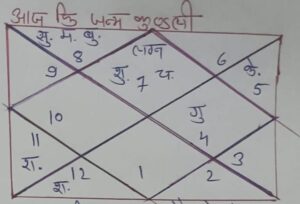 आज कि जन्म कुंडली
सु. म. बु.
लग्न
8
शु. च
6
के.
9
7
5
10
गु
4
11
3
रा.
12
1
2
श.